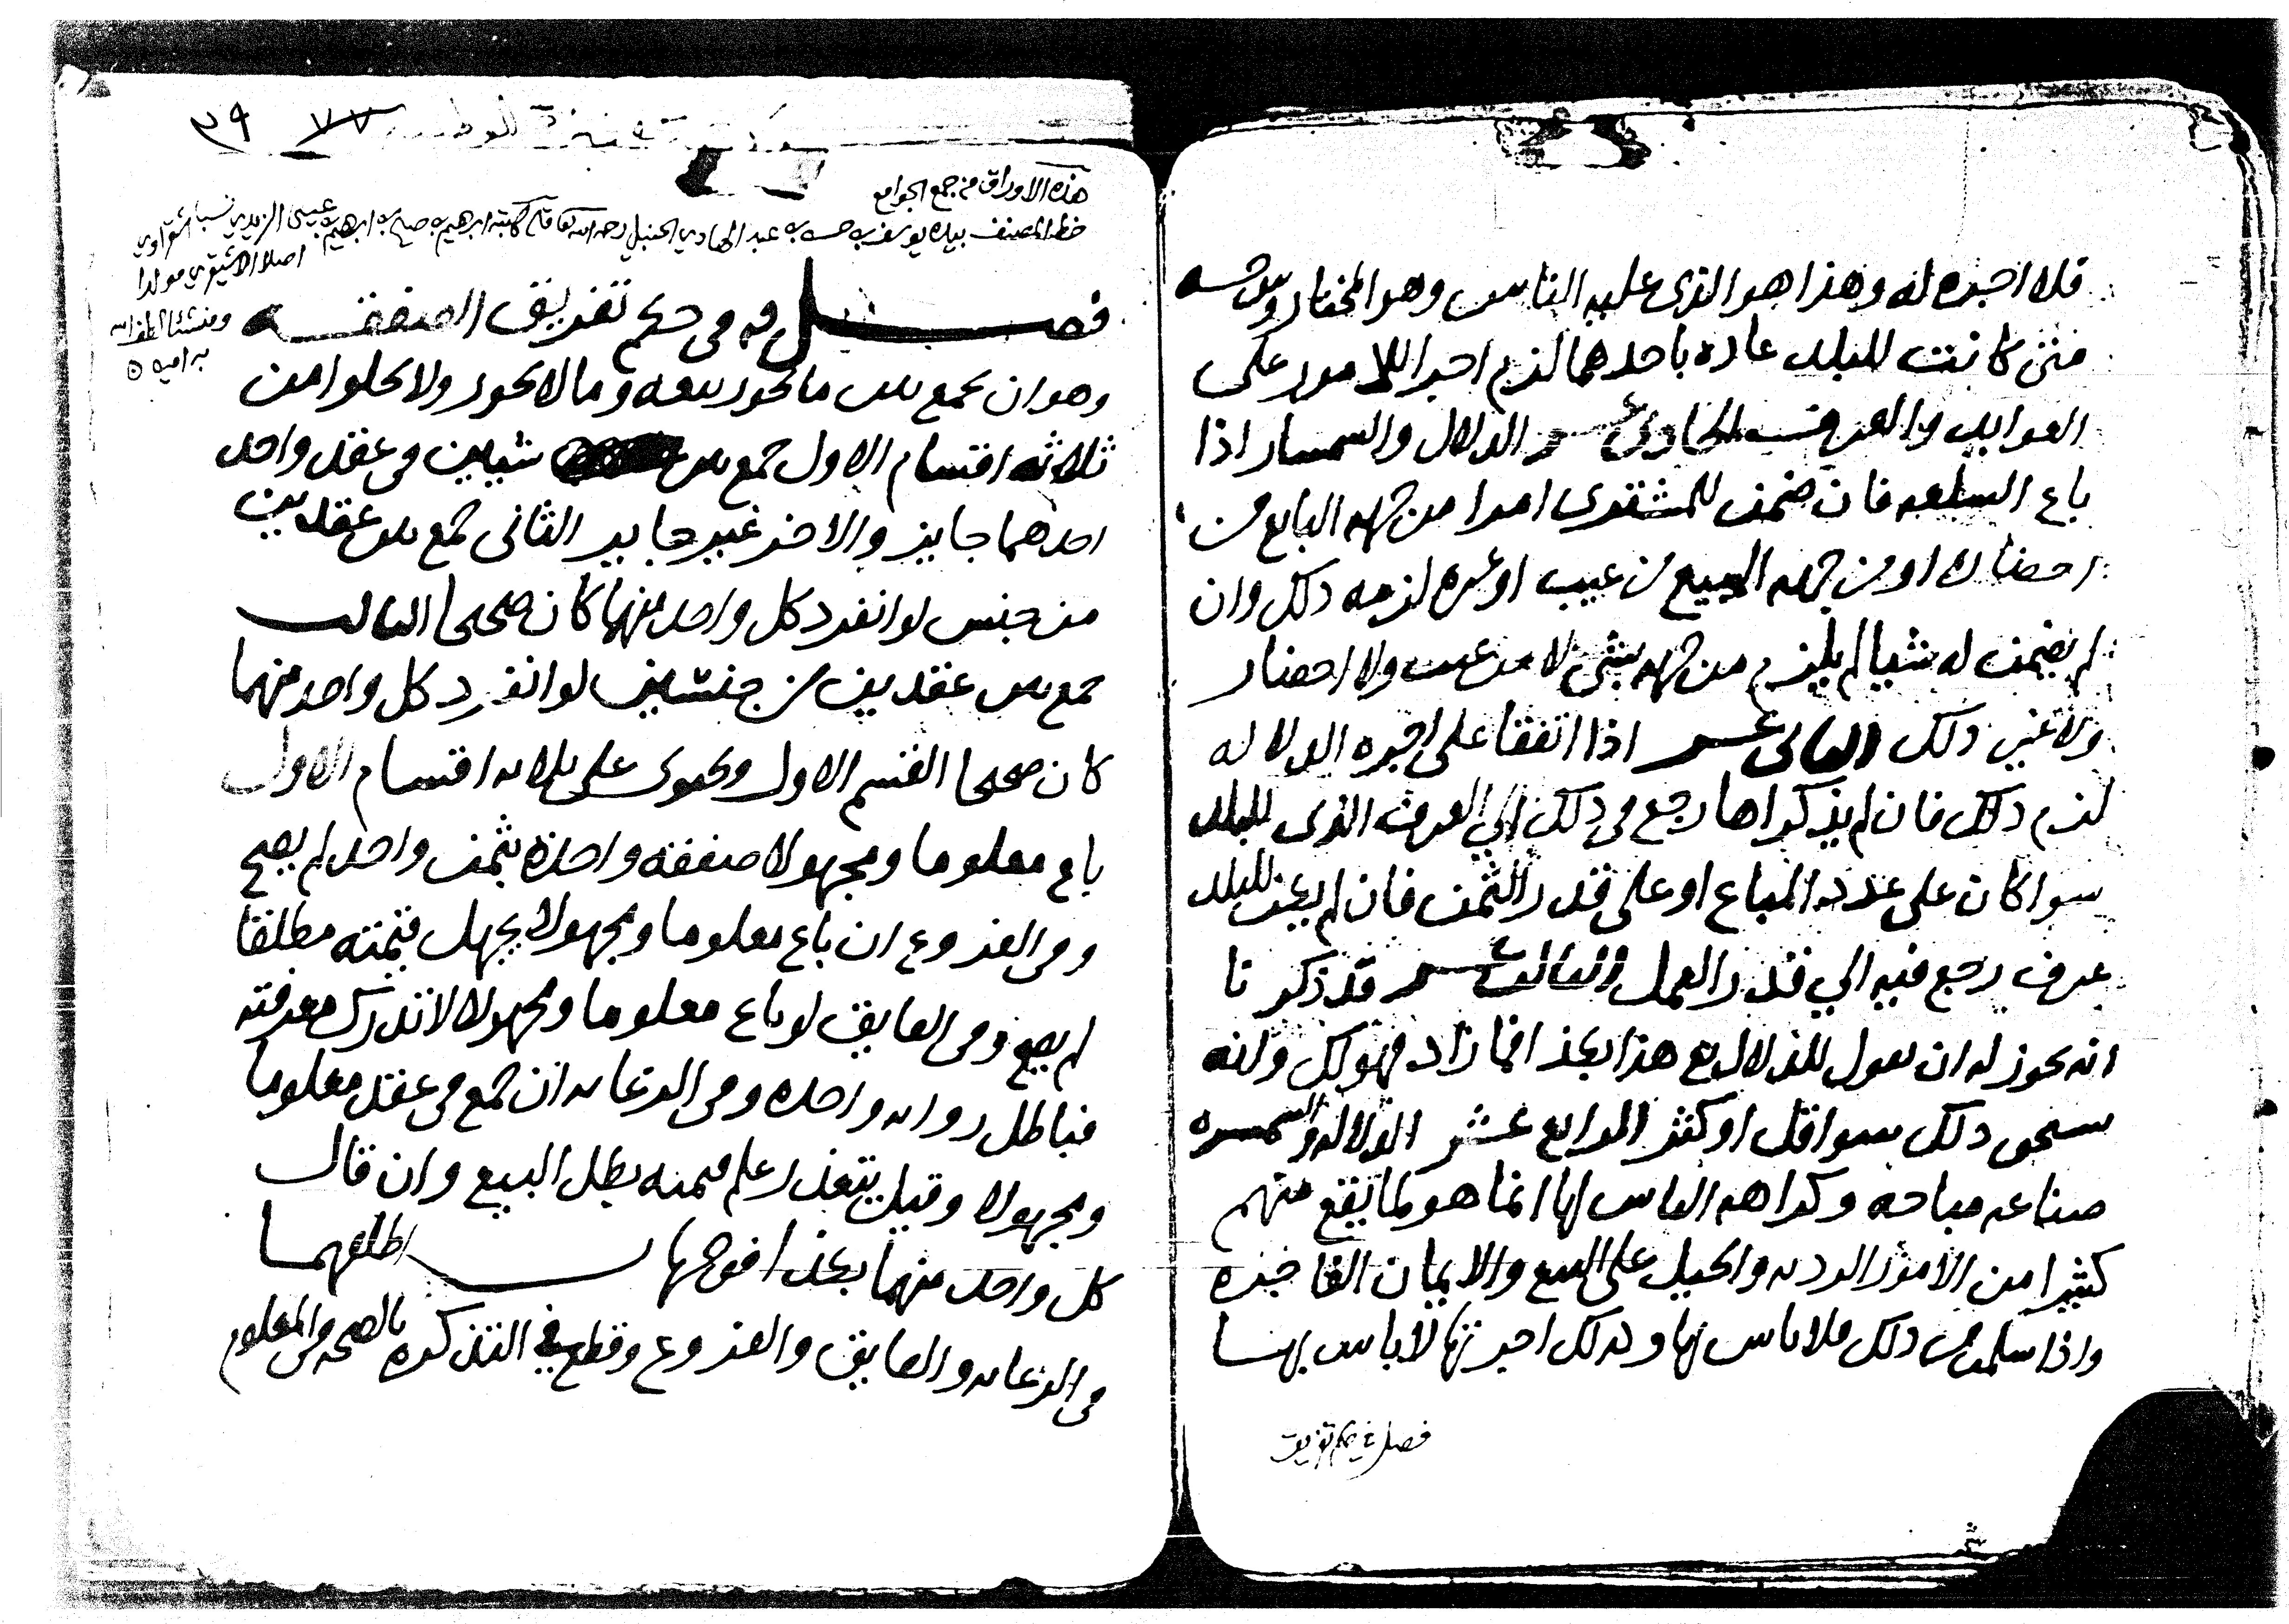 فلا اجره له وهذا هو الذى عليه الناس وهو المختار
متى كانت للبلد عاده باحدهما لزم اجرا للامور على
العوايد والعرف الحادى عشر الدلال والسمسار اذا
باع السلعه فان ضمن للمشترى امرا من جهه البايع من
احضاره او من جهه المبيع من عيب او غيره لزمه ذلك وان
لم يضمن له شيا لم يلزم من جهته شى لا من عيب ولا احضار
ولا غير ذلك الثانى عشر اذا اتفقا على اجره الدلاله
لزم ذلك فان لم يذكراها رجع فى ذلك الي العرف الذى للبلد
سوا كان على عدد المباع او على قدر الثمن فان لم يكن للبلد
عرف رجع فيه الي قدر العمل الثالث عشر قد ذكرنا
انه يجوز له ان يقول للدلال بع هذا بكذا فما زاد فهو لك وانه
يستحق ذلك سوا قل او كثر الرابع عشر الدلاله والسمسره
صناعه مباحه وكراهه الناس لها انما هو لما يقع منهم
كثيرا من الامور الرديه والحيل على البيع والايمان الفاجره
واذا سلمت من ذلك فلا باس بها وكذلك اجرتها لا باس بها
فصل في حكم تفريق
٧٧ ٣٩
هذه الاوراق من جمع الجوامع
خط المصنف بيده يوسف بن حسن بن عبد الهادي الحنبلي رحمه الله تعا قاله كاتبه ابرهيم بن صالح بن ابرهيم بن عيسى الزيدي نسبا الشقراوي
اصلا الاشيقري مولدا
ومنشئا
فصل فى حكم تفريق الصفقه
وهو ان يجمع بين ما يجوز بيعه وما لا يجوز ولا يخلوا من
ثلاثه اقسام الاول جمع بين شيين فى عقد واحد
احدهما جايز والاخر غير جايز الثانى جمع بين عقدين
من جنس لو انفرد كل واحد منهما كان صحيحا الثالث
جمع بين عقدين من جنسين لو انفرد كل واحد منهما
كان صحيحا القسم الاول ويحتوى على ثلاثه اقسام الاول
باع معلوما ومجهولا صفقه واحده بثمن واحد لم يصح
وفى الفروع ان باع معلوما ومجهولا يجهل قيمته مطلقا
لم يصح وفى الفايق لو باع معلوما ومجهولا لا تدرك معرفته
فباطل روايه واحده وفى الرعايه ان جمع فى عقد معلوما
ومجهولا وقيل يتعذر علم قيمته بطل البيع وان قال
كل واحد منهما بكذا فوجهان اطلقهما
فى الرعايه والفايق والفروع وقطع فى التذكره بالصحه فى المعلوم